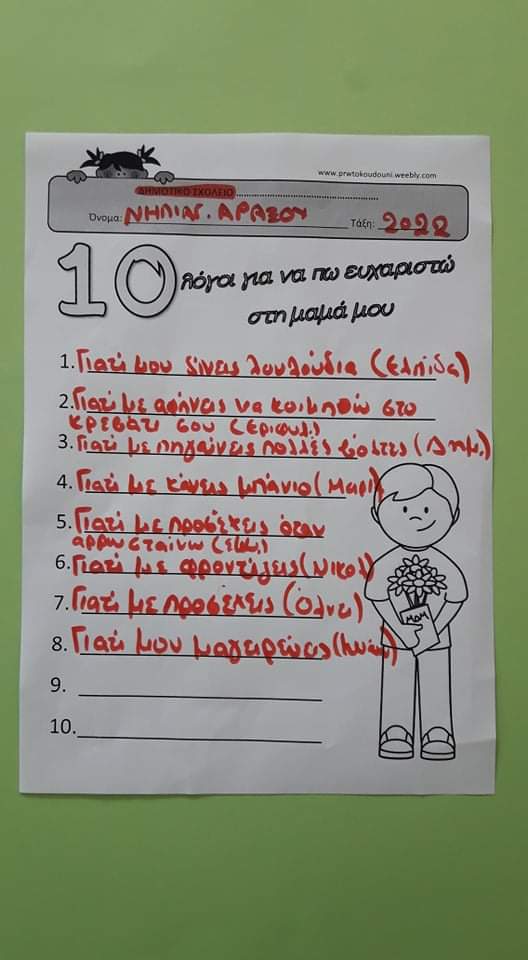 www.prwtokoudouni.weebly.com
ΔΗΜΟΤΙΚΟ ΣΧΟΛΕΙΟ
Όνομα: ΝΗΠΙΑΓ. ΑΡΑΞΟΥ Τάξη: 2022
10 λόγοι για να πω ευχαριστώ
στη μαμά μου
1. Γιατί μου δίνεις λουλούδια (Ελπίδα)
2. Γιατί με αφήνεις να κοιμηθώ στο
κρεβάτι σου (Εριφυλ.)
3. Γιατί με πηγαίνεις πολλές βόλτες (Δημ.)
4. Γιατί με κάνεις μπάνιο (Μαρί)
5. Γιατί με προσέχεις όταν
αρρωσταίνω
6. Γιατί με φροντίζεις (Νικολ)
7. Γιατί με προσέχεις (Όλνα)
8. Γιατί μου μαγειρεύεις
9.
10.
ΜΟΜ